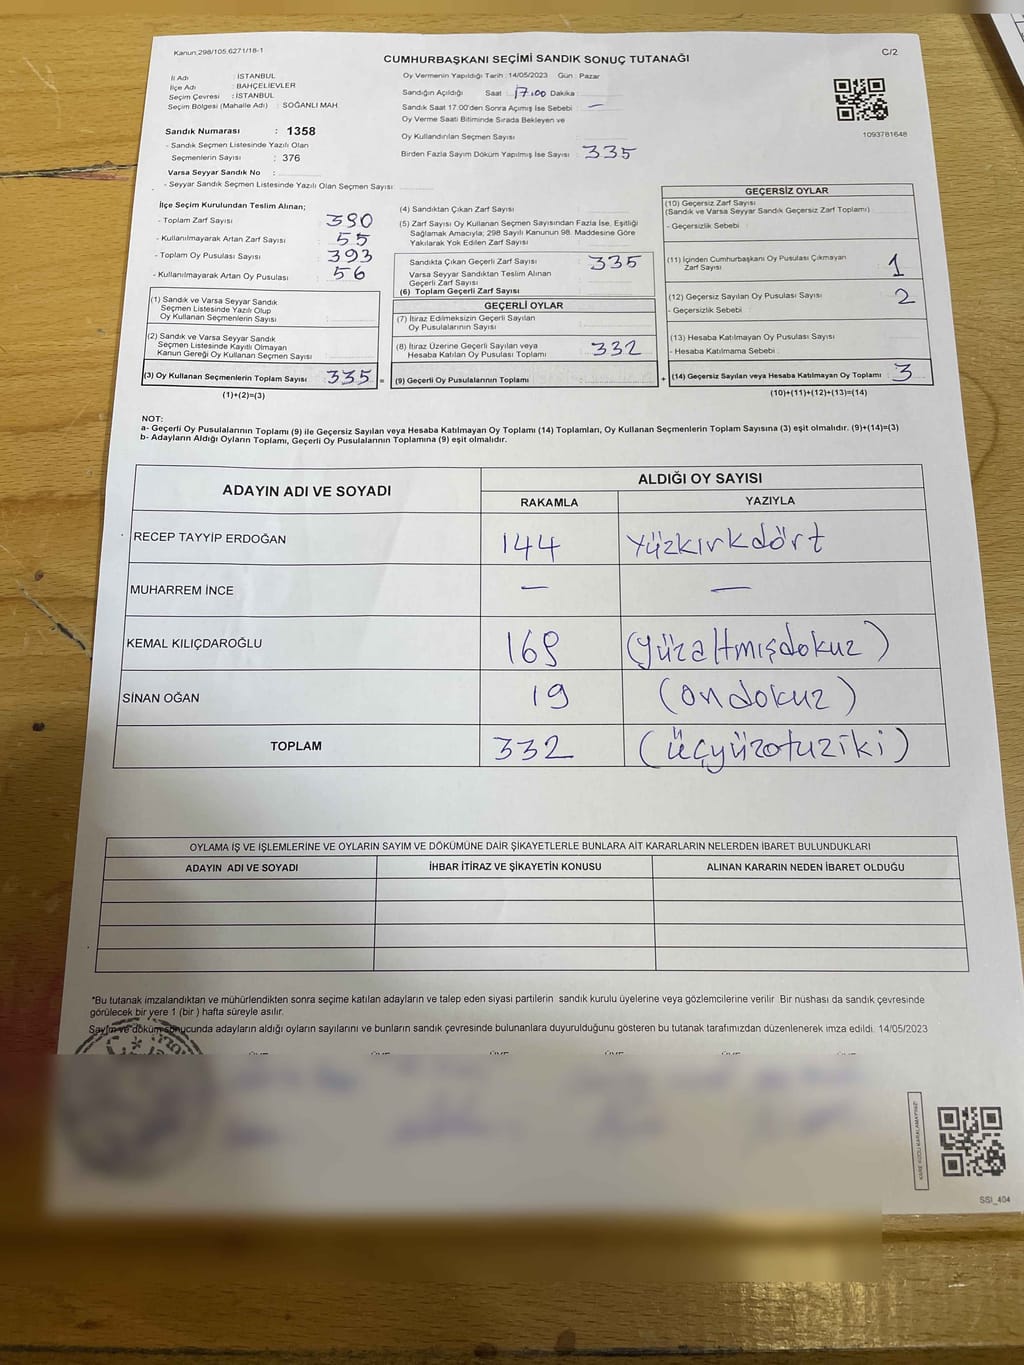 Kanun,298/105,6271/18-1
CUMHURBAŞKANI SEÇİMİ SANDIK SONUÇ TUTANAĞI
C/2
İl Adı : İSTANBUL
İlçe Adı : BAHÇELİEVLER
Seçim Çevresi : İSTANBUL
Seçim Bölgesi (Mahalle Adı) : SOĞANLI MAH.
Sandık Numarası : 1358
- Sandık Seçmen Listesinde Yazılı Olan
Seçmenlerin Sayısı : 376
Varsa Seyyar Sandık No :
- Seyyar Sandık Seçmen Listesinde Yazılı Olan Seçmen Sayısı
Oy Vermenin Yapıldığı Tarih : 14/05/2023 Gün : Pazar
Sandığın Açıldığı Saat 17:00 Dakika
Sandık Saat 17:00'den Sonra Açımış İse Sebebi : —
Oy Verme Saati Bitiminde Sırada Bekleyen ve
Oy Kullandırılan Seçmen Sayısı
Birden Fazla Sayım Döküm Yapılmış İse Sayısı : 335
1093781648
İlçe Seçim Kurulundan Teslim Alınan;
- Toplam Zarf Sayısı 390
- Kullanılmayarak Artan Zarf Sayısı 55
- Toplam Oy Pusulası Sayısı 393
- Kullanılmayarak Artan Oy Pusulası 56
(1) Sandık ve Varsa Seyyar Sandık
Seçmen Listesinde Yazılı Olup
Oy Kullanan Seçmenlerin Sayısı
(2) Sandık ve Varsa Seyyar Sandık
Seçmen Listesinde Kayıtlı Olmayan
Kanun Gereği Oy Kullanan Seçmen Sayısı
(3) Oy Kullanan Seçmenlerin Toplam Sayısı 335 =
(1)+(2)=(3)
(4) Sandıktan Çıkan Zarf Sayısı
(5) Zarf Sayısı Oy Kullanan Seçmen Sayısından Fazla İse, Eşitliği
Sağlamak Amacıyla; 298 Sayılı Kanunun 98. Maddesine Göre
Yakılarak Yok Edilen Zarf Sayısı
Sandıkta Çıkan Geçerli Zarf Sayısı : 335
Varsa Seyyar Sandıktan Teslim Alınan
Geçerli Zarf Sayısı
(6) Toplam Geçerli Zarf Sayısı
GEÇERLİ OYLAR
(7) İtiraz Edilmeksizin Geçerli Sayılan
Oy Pusulalarının Sayısı
(8) İtiraz Üzerine Geçerli Sayılan veya
Hesaba Katılan Oy Pusulası Toplamı 332
(9) Geçerli Oy Pusulalarının Toplamı +
GEÇERSİZ OYLAR
(10) Geçersiz Zarf Sayısı
(Sandık ve Varsa Seyyar Sandık Geçersiz Zarf Toplamı)
- Geçersizlik Sebebi
(11) İçinden Cumhurbaşkanı Oy Pusulası Çıkmayan
Zarf Sayısı 1
(12) Geçersiz Sayılan Oy Pusulası Sayısı 2
- Geçersizlik Sebebi
(13) Hesaba Katılmayan Oy Pusulası Sayısı
- Hesaba Katılmama Sebebi
(14) Geçersiz Sayılan veya Hesaba Katılmayan Oy Toplamı : 3
(10)+(11)+(12)+(13)=(14)
NOT:
a- Geçerli Oy Pusulalarının Toplamı (9) ile Geçersiz Sayılan veya Hesaba Katılmayan Oy Toplamı (14) Toplamları, Oy Kullanan Seçmenlerin Toplam Sayısına (3) eşit olmalıdır. (9)+(14)=(3)
b- Adayların Aldığı Oyların Toplamı, Geçerli Oy Pusulalarının Toplamına (9) eşit olmalıdır.
ADAYIN ADI VE SOYADI
ALDIĞI OY SAYISI
RAKAMLA YAZIYLA
RECEP TAYYİP ERDOĞAN 144 Yüzkırkdört
MUHARREM İNCE — —
KEMAL KILIÇDAROĞLU 169 (yüzaltmışdokuz)
SİNAN OĞAN 19 (ondokuz)
TOPLAM 332 (üçyüzotuziki)
OYLAMA İŞ VE İŞLEMLERİNE VE OYLARIN SAYIM VE DÖKÜMÜNE DAİR ŞİKAYETLERLE BUNLARA AİT KARARLARIN NELERDEN İBARET BULUNDUKLARI
ADAYIN ADI VE SOYADI İHBAR İTİRAZ VE ŞİKAYETİN KONUSU ALINAN KARARIN NEDEN İBARET OLDUĞU
*Bu tutanak imzalandıktan ve mühürlendikten sonra seçime katılan adayların ve talep eden siyasi partilerin sandık kurulu üyelerine veya gözlemcilerine verilir Bir nüshası da sandık çevresinde
görülecek bir yere 1 (bir) hafta süreyle asılır.
Sayım ve döküm sonucunda adayların aldığı oyların sayılarını ve bunların sandık çevresinde bulunanlara duyurulduğunu gösteren bu tutanak tarafımızdan düzenlenerek imza edildi. 14/05/2023
KARE KODU KARALAMAYINIZ!
SSI_404